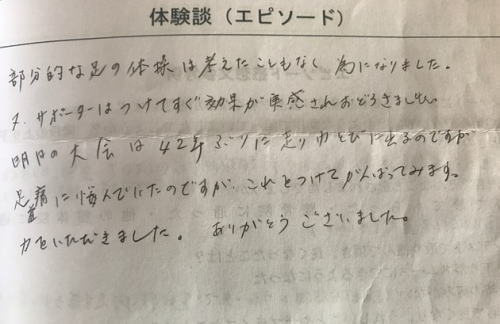 体験談（エピソード）
部分的な足の体操は考えたこともなく 為になりました。
又、サポーターはつけてすぐ効果が実感されおどろきました。
明日の大会は42年ぶりに走り巾とびに出るのですが
足首痛に悩んでいたのですが、これをつけてがんばってみます。
力をいただきました。 ありがとうございました。